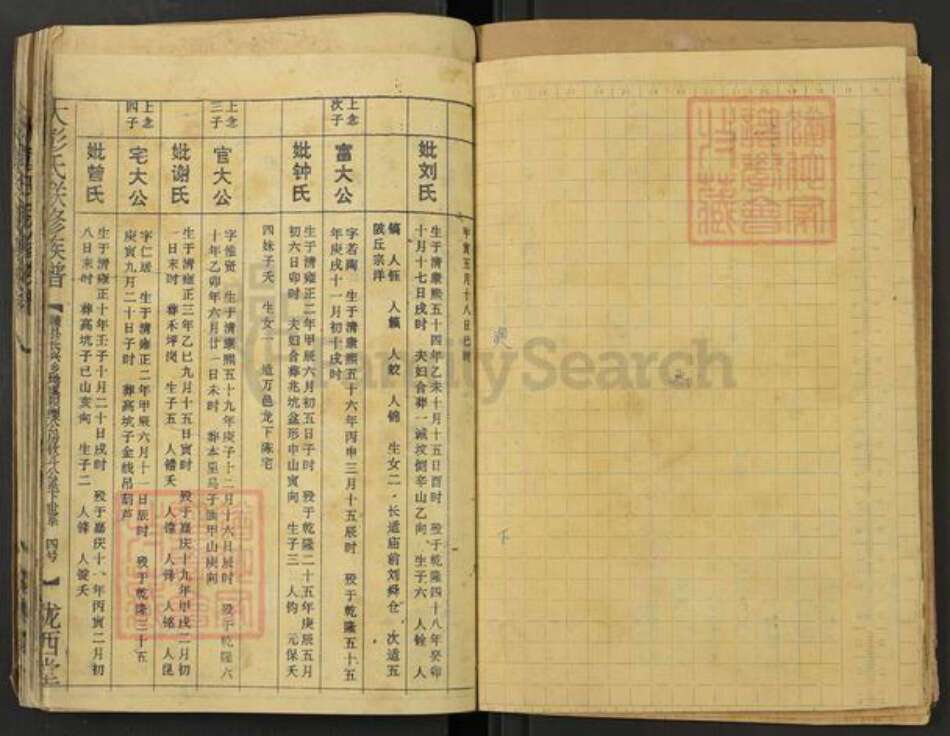 年寅五月十八日巳时
妣刘氏
生于清康熙五十四年乙未十月十五日酉时 殁于乾隆四十八年癸卯
十月十七日戌时 夫妇合葬一诚坟倒辛山乙向 生子六 人铨 人
镐 人钰 人籁 人蛟 人锦 生女二 长适庙前刘舜仓 次适五
陂丘宗洋
上念次子
富大公
字若陶 生于清康熙五十六年丙申三月十五辰时 殁于乾隆五十五
年庚戌十一月初十戌时
妣钟氏
生于清雍正二年甲辰六月初五日子时 殁于乾隆二十五年庚辰五月
初六日卯时 夫妇合葬兆坑盆形申山寅向 生子三 人钧 元保夭
四妹子夭 生女一 适万邑龙下陈宅
上念三子
官大公
字惟贤 生于清康熙五十九年庚子十二月十六日辰时 殁于乾隆六
十年乙卯年六月廿一日未时 葬本里马子 甲山庚向
妣谢氏
生于清雍正三年乙巳九月十五日寅时 殁于嘉庆十九年甲戌二月初
一日未时 葬禾坪岗 生子五 人镨夭 人 人铎 人铭 人昆
上念四子
宅大公
字仁居 生于清雍正二年甲辰六月十一日辰时 殁于乾隆三十五
庚寅九月二十日子时 葬高坑子金线吊葫芦
妣曾氏
生于清雍正十年壬子十月二十日戌时 殁于嘉庆十一年丙寅二月初
八日未时 葬高坑子巳山亥向 生子二 人锋 人锭夭
大彭氏联修族谱
四号
陇西堂
FamilySearch